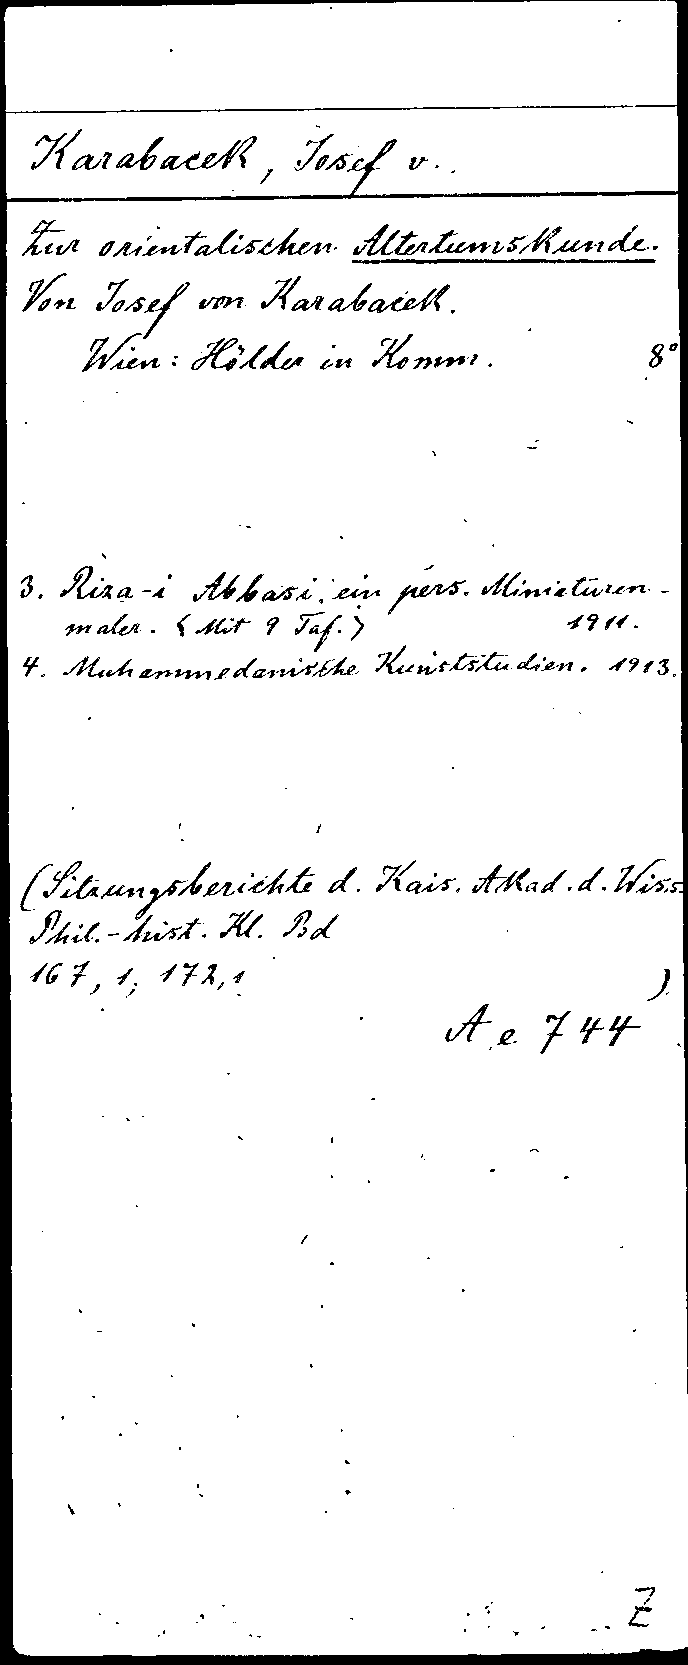 Karabacek, Josef v.
Zur orientalischen Altertumskunde.
Von Josef von Karabacek.
Wien: Hölder in Komm. 8°
3. Riza-i Abbasi, ein pers. Miniaturen-
maler. (Mit 9 Taf.) 1911.
4. Muhammedanische Kunststudien. 1913.
(Sitzungsberichte d. Kais. Akad. d. Wiss.
Phil.-hist. Kl. Bd
167, 1; 172, 1 )
Ae 744
Z